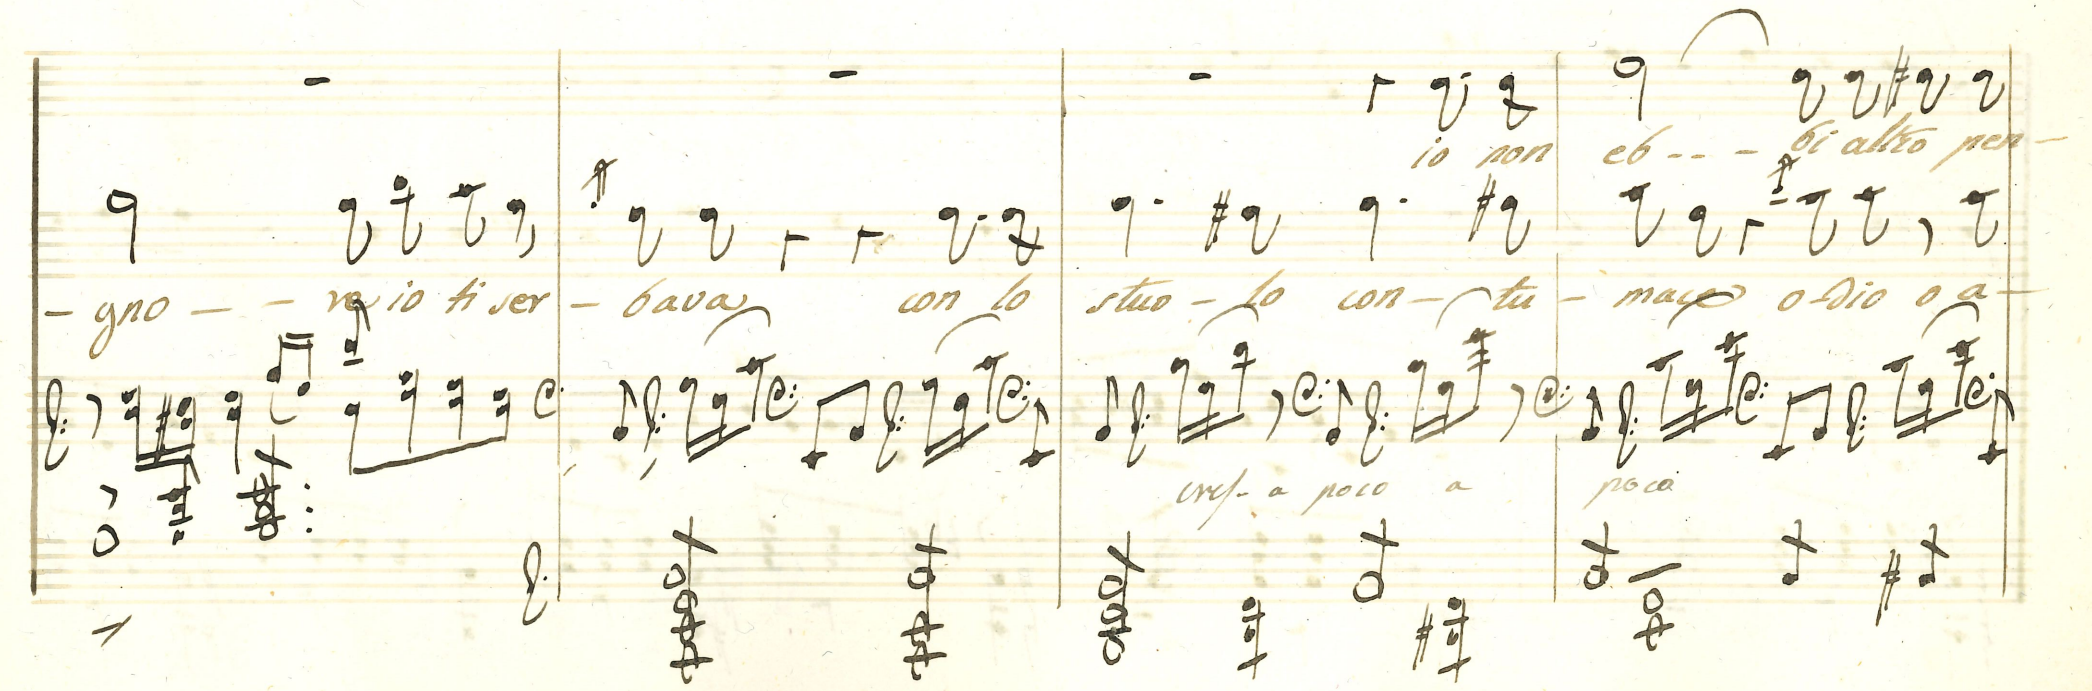 io non eb - - - bi altro pen -
- gno - - re io ti ser - bava con lo stuo - lo con - tu - mace o - dio o a -
cresc. a poco a poco